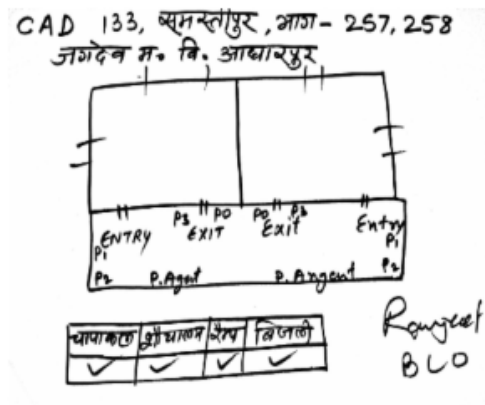 CAD 133, समस्तीपुर, भाग - 257, 258
जगदेव म. वि. आधारपुर
P3 PO PO P3
ENTRY EXIT Exit Entry
P1 P1
P2 P.Agent P.Angent P2
चापाकल शौचालय रैम्प बिजली
✓ ✓ ✓ ✓
Ranjeet
BLO